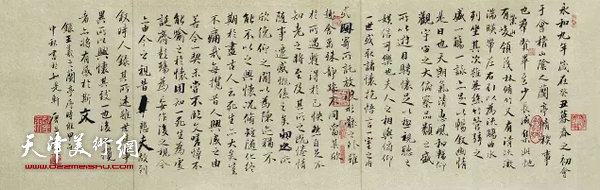 永和九年歲在癸丑暮春之初會
于會稽山陰之蘭亭脩稧事
也羣賢畢至少長咸集此地
有崇山峻領茂林脩竹又有清流激
湍暎帶左右引以為流觴曲水
列坐其次雖無絲竹管弦之
盛一觴一詠亦足以暢敘幽情
是日也天朗氣清惠風和暢仰
觀宇宙之大俯察品類之盛
所以遊目騁懷足以極視聽之
娛信可樂也夫人之相與俯仰
一世或取諸懷抱悟言一室之內
或因寄所託放浪形骸之外雖
趣舍萬殊靜躁不同當其欣
於所遇蹔得於己快然自足不
知老之將至及其所之既惓情
隨事遷感慨係之矣向之所
欣俛仰之間以為陳迹猶不
能不以之興懷況脩短隨化終
期於盡古人云死生亦大矣豈
不痛哉每攬昔人興感之由
若合一契未嘗不臨文嗟悼不
能喻之於懷固知一死生為虛
誕齊彭殤為妄作後之視今
亦由今之視昔悲夫故列
敘時人錄其所述雖世殊事
異所以興懷其致一也後之攬
者亦將有感於斯文
錄王羲之蘭亭序時
中秋書於
天津美術網